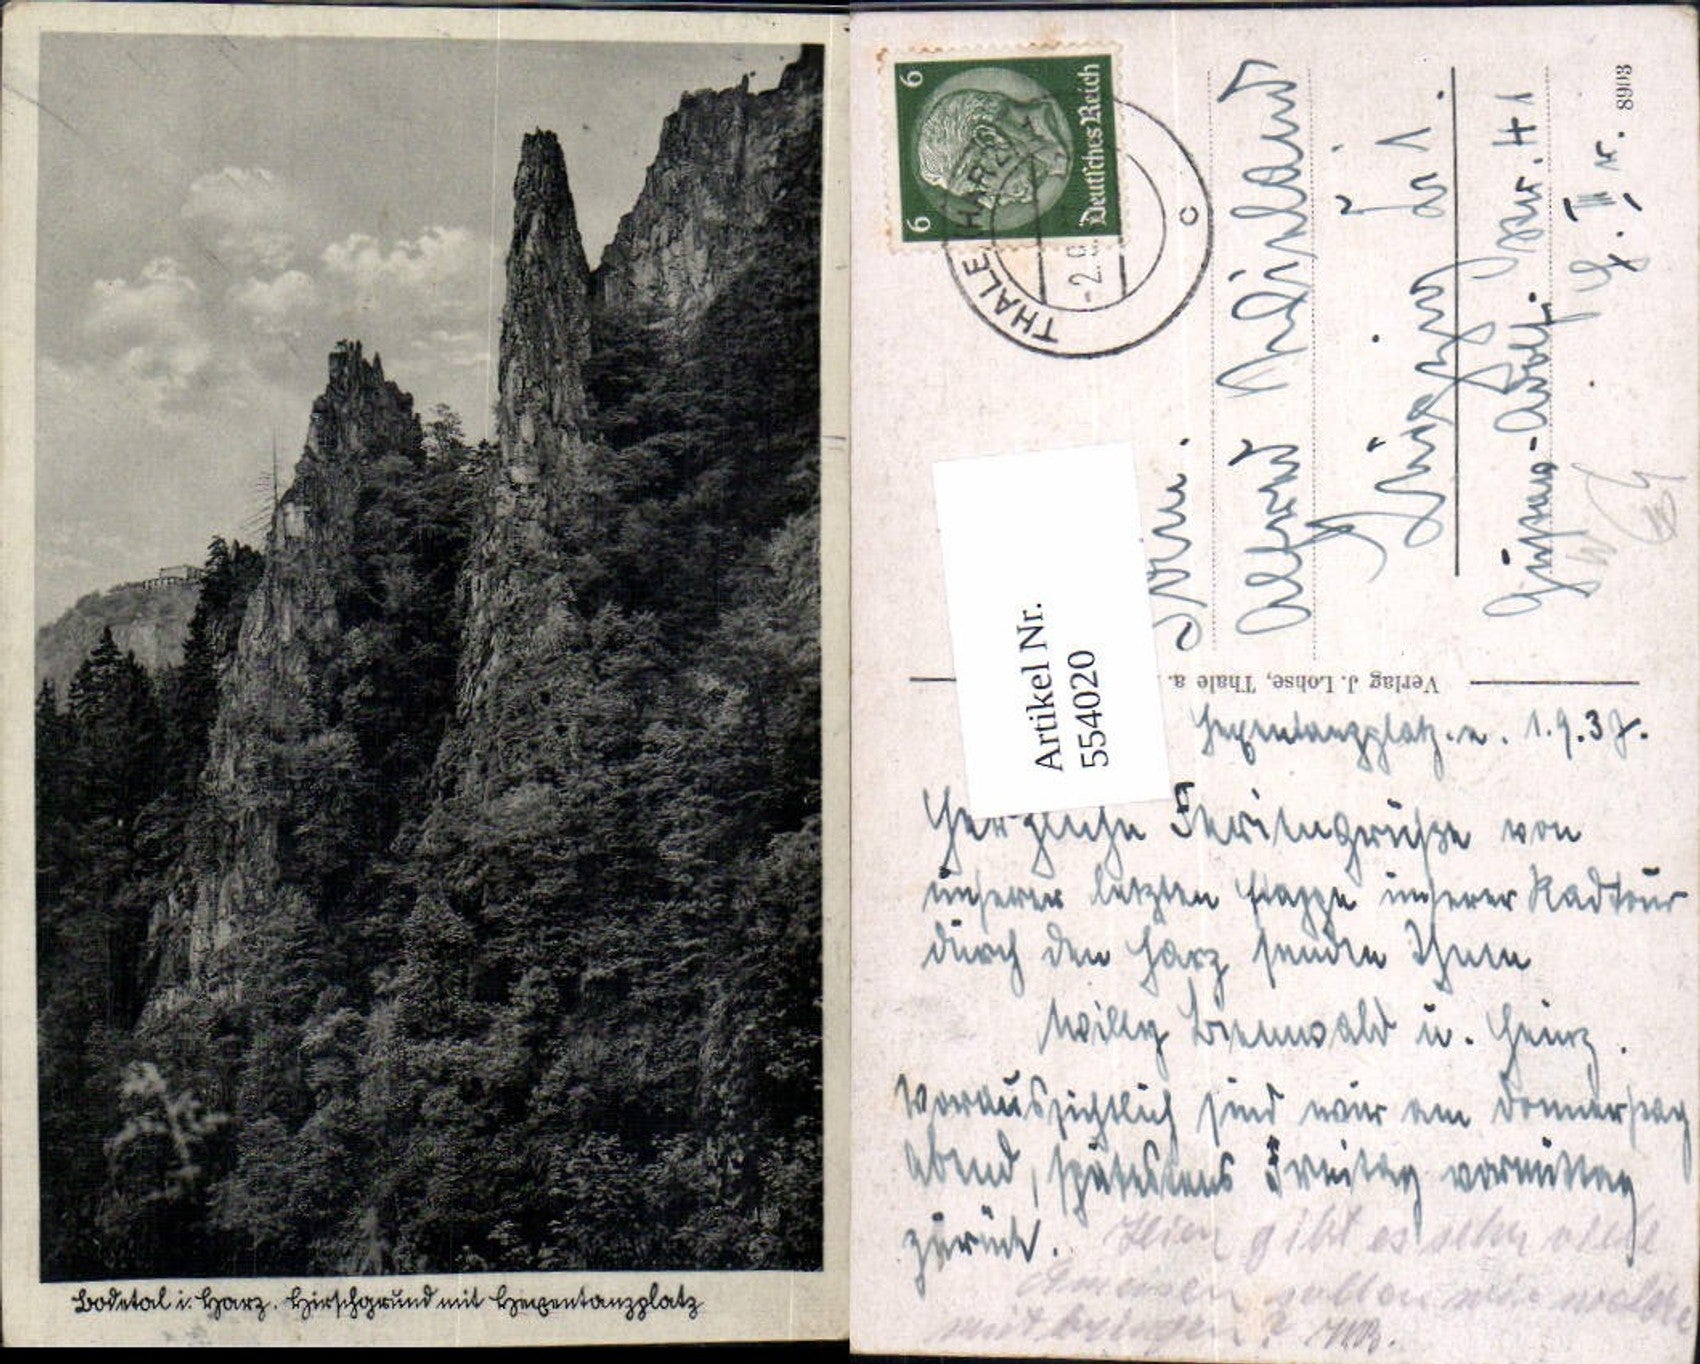 Bodetal i. Harz. Hirschgrund mit Hexentanzplatz
6 6
Deutsches Reich
THALE HARZ
-2.9
c
8903
Artikel Nr.
554020
Verlag J. Lohse, Thale a.
Albert
Leipzig
Gustav-Adolf-
Hexentanzplatz. 1.9.37.
Herzliche Feriengrüße von
unserer letzten Etappe unserer Radtour
durch den Harz senden Ihnen
Willy Bienwald u. Heinz.
Voraussichtlich sind wir am Donnerstag
abend, spätestens Freitag vormittag
zurück.
Hier gibt es sehr viele
Ameisen sollen wir welche
mitbringen? WB.